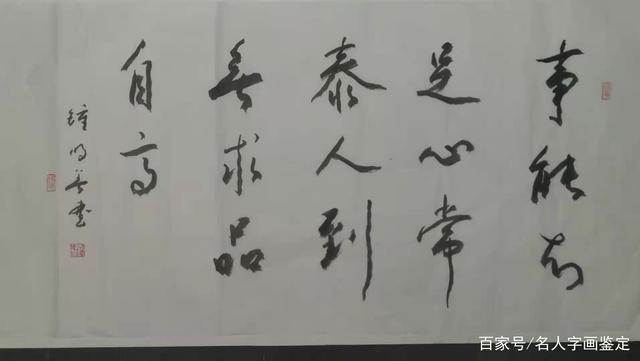 事能知
足心常
泰人到
無求品
自高
鍾明善書
百家号/名人字画鉴定